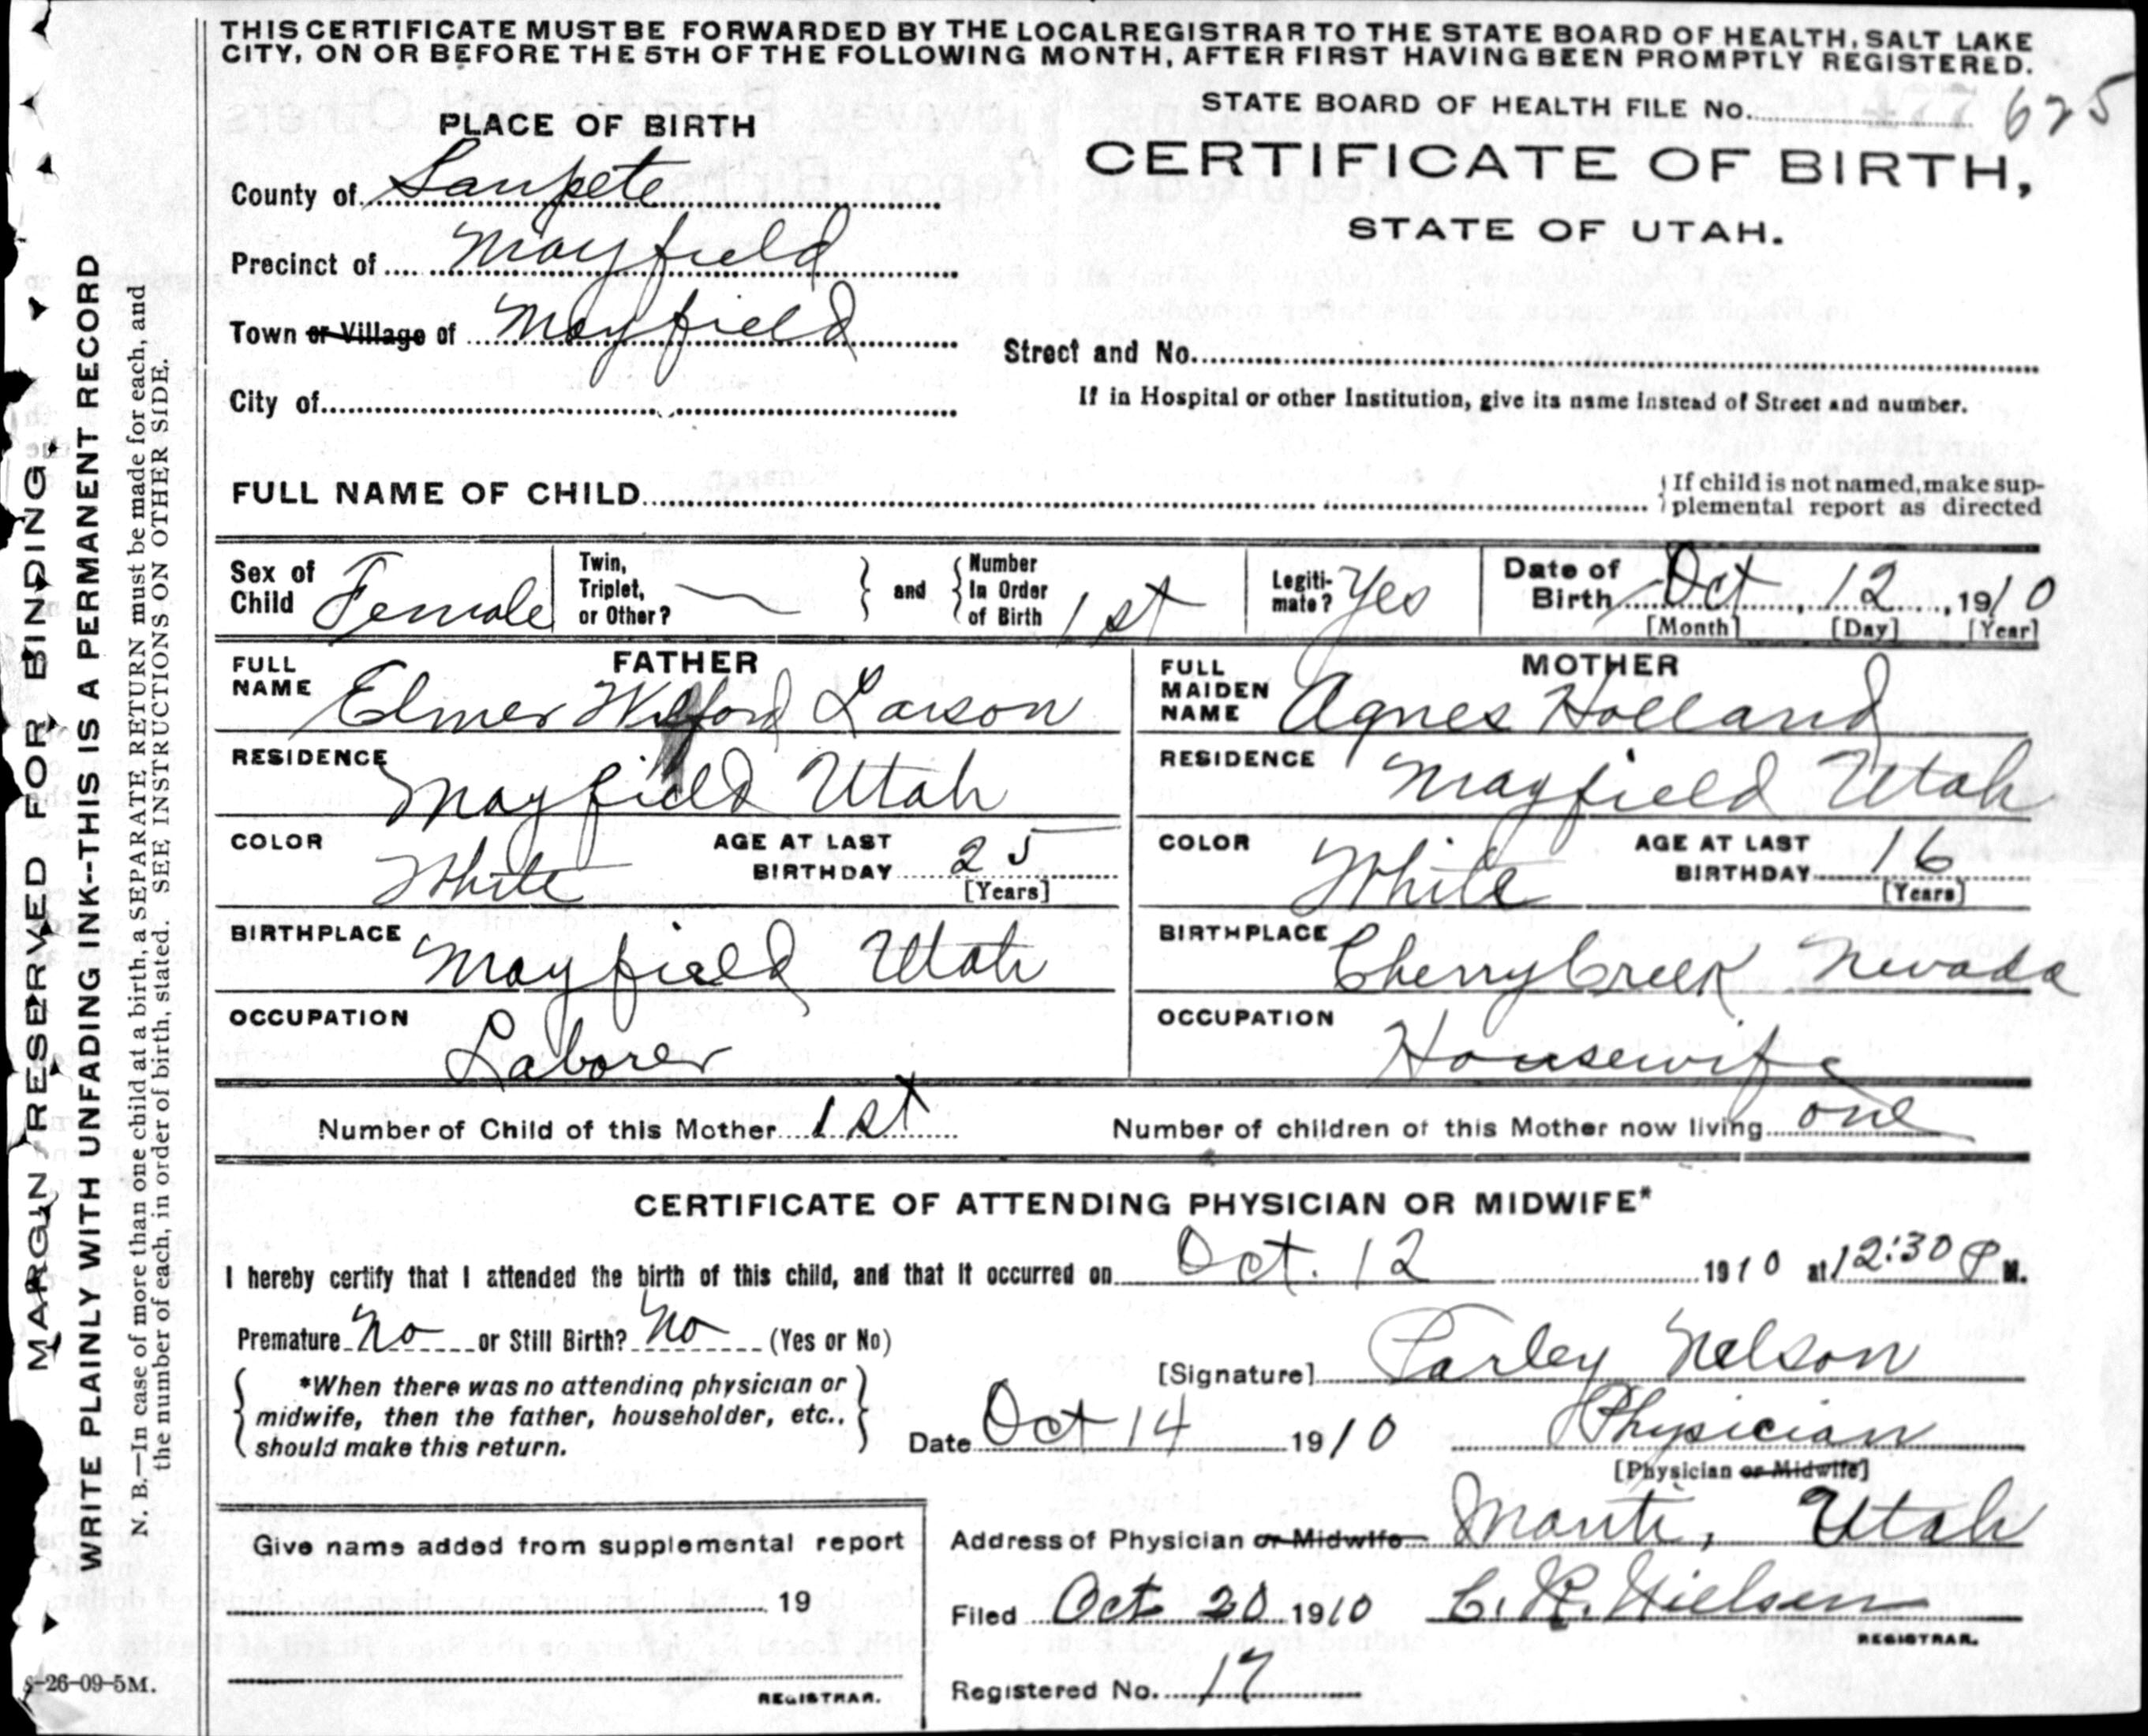 THIS CERTIFICATE MUST BE FORWARDED BY THE LOCAL REGISTRAR TO THE STATE BOARD OF HEALTH, SALT LAKE
CITY, ON OR BEFORE THE 5TH OF THE FOLLOWING MONTH, AFTER FIRST HAVING BEEN PROMPTLY REGISTERED.
STATE BOARD OF HEALTH FILE No. 625
PLACE OF BIRTH
CERTIFICATE OF BIRTH,
STATE OF UTAH.
County of Sanpete
Precinct of Mayfield
Town or Village of Mayfield
Street and No.
City of
If in Hospital or other Institution, give its name instead of Street and number.
FULL NAME OF CHILD
If child is not named, make sup-
plemental report as directed
Sex of Child Female
Twin, Triplet, or Other? —
and
Number In Order of Birth 1st
Legiti-mate? Yes
Date of Birth Oct, 12, 1910
[Month] [Day] [Year]
FATHER
FULL NAME Elmer Wilford Larson
RESIDENCE Mayfield Utah
COLOR White
AGE AT LAST BIRTHDAY 25
[Years]
BIRTHPLACE Mayfield Utah
OCCUPATION Laborer
MOTHER
FULL MAIDEN NAME Agnes Holland
RESIDENCE Mayfield Utah
COLOR White
AGE AT LAST BIRTHDAY 16
[Years]
BIRTHPLACE Cherry Creek Nevada
OCCUPATION Housewife
Number of Child of this Mother 1st
Number of children of this Mother now living one
CERTIFICATE OF ATTENDING PHYSICIAN OR MIDWIFE*
I hereby certify that I attended the birth of this child, and that it occurred on Oct. 12 1910 at 12:30 P M.
Premature No or Still Birth? No (Yes or No)
[Signature] Parley Nelson
*When there was no attending physician or
midwife, then the father, householder, etc.,
should make this return.
Date Oct 14 1910
Physician
[Physician or Midwife]
Address of Physician or Midwife Manti, Utah
Give name added from supplemental report
19
REGISTRAR.
Filed Oct 20 1910 C. R. Nielsen
REGISTRAR.
Registered No. 17
MARGIN RESERVED FOR BINDING
WRITE PLAINLY WITH UNFADING INK--THIS IS A PERMANENT RECORD
N. B.—In case of more than one child at a birth, a SEPARATE RETURN must be made for each, and
the number of each, in order of birth, stated. SEE INSTRUCTIONS ON OTHER SIDE.
-26-09-5M.